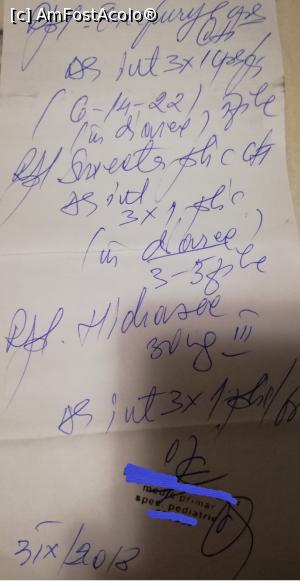 [c] AmFostAcolo®
Rp/. cps
DS int 3x1 cps/zi
(6-14-22) zile
(în diaree)
Rp/. Smecta plic
DS int
3x1 plic
(în diaree)
3-5 zile
Rp/. Hidrasec
30 mg III
DS int 3x1 plic/zi
medic primar
spec. pediatrie
3 IX/2018